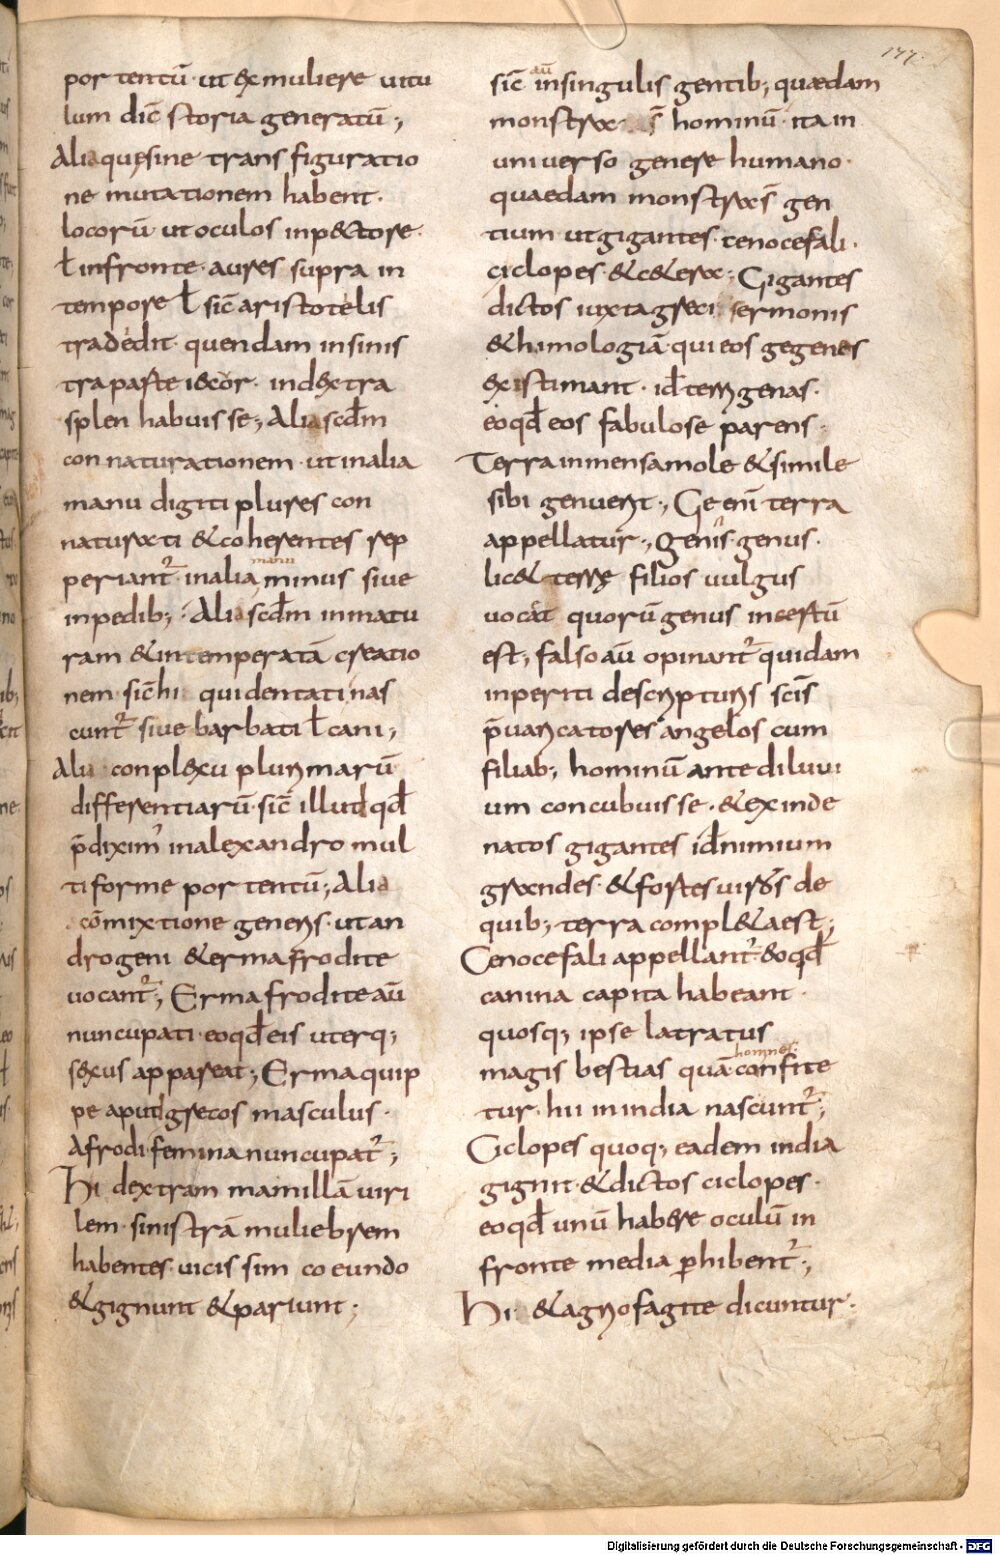 177.
portentū ut exmuliere uitu
lum dic̄ storia generatū;
Aliaquesine transfiguratio
ne mutationem habent·
locorū utoculos inpectore·
ł infronte· aures supra in
tempore ł sic̄ aristotelis
tradedit· quendam insinis
traparte iecor· indextra
splen habuisse; Aliasecd̄m
connaturationem· utinalia
manu digiti plures con
naturati &coherentes rep
periant᷑· inalia manu minus siue
inpedib; Aliasecd̄m inmatu
ram &intemperatā creatio
nem· sic̄ hi quidentati nas
cunt᷑ siue barbati ł cani;
Alia conplexu plurimarū
differentiarū· sic̄ illud qđ
p̄diximꝰ inalexandro mul
tiforme portentū; Alia
cōmixtione generis· utan
drogeni &ermafrodite
uocant᷑; Ermafrodite aū
nuncupati· eoqđ eis uterq;
sexus appareat; Ermaquip
pe aput grecos masculus·
Afrodi femina nuncupat᷑;
Hi dextram mamillā uiri
lem· sinistrā muliebrem
habentes· uicissim coeundo
&gignunt &pariunt;
sic̄ aū insingulis gentib; quædam
monstra s̄ hominū· ita in
uniuerso genere humano·
quaedam monstra s̄ gen
tium· utgigantes· cenocefali·
ciclopes· &cetera; Gigantes
dictos iuxta greci sermonis
&himologiā· qui eos gegenes
existimant· id ÷ terrigenas·
eoqđ eos fabulose parens·
Terra inmensa mole &simile
sibi genuerit; Ge eni terra
appellatur; genis· genus·
lic& terrę filios uulgus
uocat quorū genus incertū
est; falso aū opinant᷑ quidam
inperiti descripturis sc̄is
p̄uaricatores angelos cum
filiab; hominū ante diluui
um concubuisse· &exinde
natos gigantes id ÷ nimium
grandes· &fortes uiros de
quib; terra compl&a est;
Cenocefali appellant᷑· eoqđ
canina capita habeant·
quosq; ipse latratus
magis bestias quā homines confite
tur· hii inindia nascunt᷑;
Ciclopes quoq; eadem india
gignit· &dictos ciclopes·
eoqđ unū habere oculū in
fronte media ꝑhibent᷑;
Hi &agriofagite dicuntur·
Digitalisierung gefördert durch die Deutsche Forschungsgemeinschaft - DFG